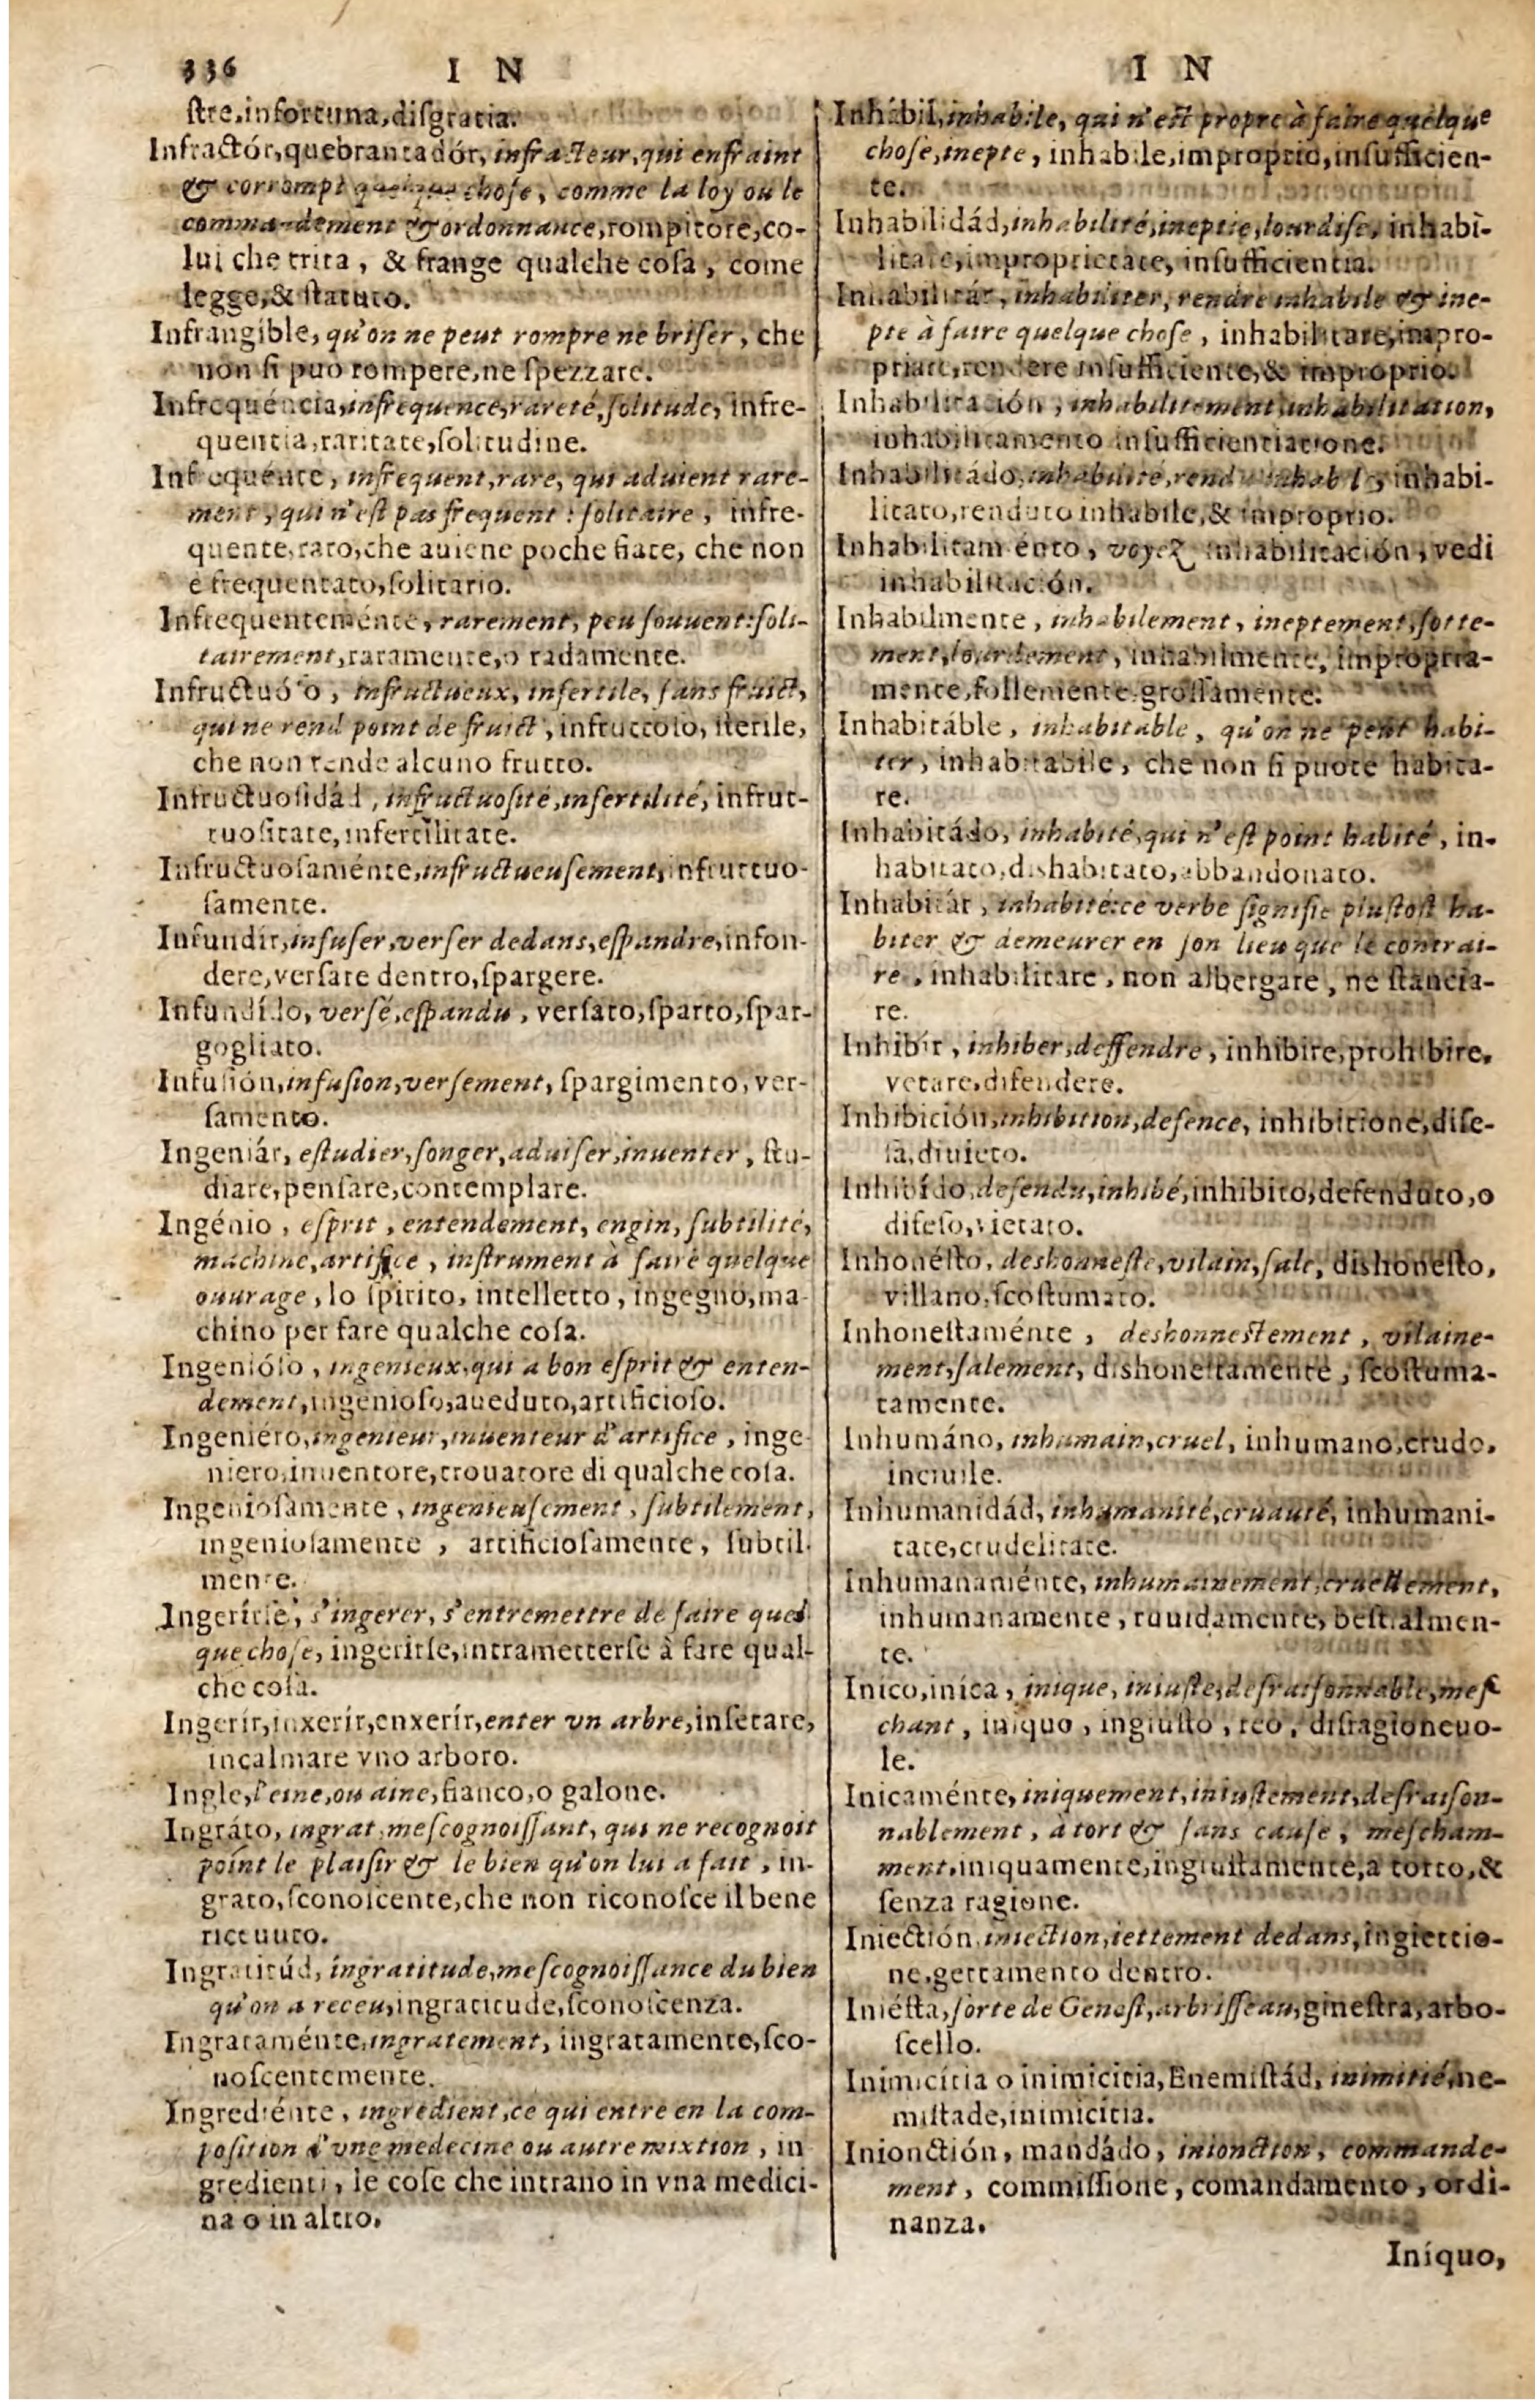 336 I N
ſtre, infortuna, diſgratia.
Infractór, quebrantadór, infracteur, qui enfraint
& corrompt quelque choſe, comme la loy ou le
commandement & ordonnance, rompitore, co-
lui che trita, & frange qualche coſa, come
legge, & ſtatuto.
Infrangible, qu'on ne peut rompre ne briſer, che
non ſi puo rompere, ne ſpezzare.
Infrequéncia, infrequence, rareté, ſolitude, infre-
quentia, raritate, ſolitudine.
Infrequénte, infrequent, rare, qui aduient rare-
ment, qui n'eſt pas frequent : ſolitaire, infre-
quente, raro, che auiene poche fiate, che non
e frequentato, ſolitario.
Infrequenteménte, rarement, peu ſouuent: ſoli-
tairement, raramente, o radamente.
Infructuóſo, infructueux, infertile, ſans fruict,
qui ne rend point de fruict, infruttoſo, ſterile,
che non rende alcuno frutto.
Infructuoſidád, infructuoſité, infertilité, infrut-
tuoſitate, infertilitate.
Infructuoſaménte, infructueuſement, infruttuo-
ſamente.
Infundir, infuſer, verſer dedans, eſpandre, infon-
dere, verſare dentro, ſpargere.
Infundído, verſé, eſpandu, verſato, ſparto, ſpar-
gogliato.
Infuſión, infuſion, verſement, ſpargimento, ver-
ſamento.
Ingeniár, eſtudier, ſonger, aduiſer, inuenter, ſtu-
diare, penſare, contemplare.
Ingénio, eſprit, entendement, engin, ſubtilité,
machine, artifice, inſtrument à faire quelque
ouurage, lo ſpirito, intelletto, ingegno, ma
chino per fare qualche coſa.
Ingenióſo, ingenieux, qui a bon eſprit & enten-
dement, ingenioſo, aueduto, artificioſo.
Ingeniéro, ingenieur, inuenteur d'artifice, inge-
niero, inuentore, trouatore di qualche coſa.
Ingenioſamente, ingenieuſement, ſubtilement,
ingenioſamente, artificioſamente, ſubtil-
mente.
Ingerírſe, s'ingerer, s'entremettre de faire quel
que choſe, ingerirſe, intrametterſe à fare qual-
che coſa.
Ingerír, inxerír, enxerír, enter vn arbre, inſetare,
incalmare vno arboro.
Ingle, l'eine, ou aine, fianco, o galone.
Ingráto, ingrat, meſcognoiſſant, qui ne recognoit
point le plaiſir & le bien qu'on lui a fait, in-
grato, ſconoſcente, che non riconoſce il bene
riceuuto.
Ingratitúd, ingratitude, meſcognoiſſance du bien
qu'on a receu, ingratitude, ſconoſcenza.
Ingrataménte, ingratement, ingratamente, ſco-
noſcentemente.
Ingrediénte, ingredient, ce qui entre en la com-
poſition d'vne medecine ou autre mixtion, in
gredienti, le coſe che intrano in vna medici-
na o in altro.
I N
Inhábil, inhabile, qui n'eſt propre à faire quelque
choſe, inepte, inhabile, improprio, inſufficien-
te.
Inhabilidád, inhabilité, ineptie, lourdiſe, inhabi-
litate, improprietate, inſufficientia.
Inhabilitár, inhabiliter, rendre inhabile & ine-
pte à faire quelque choſe, inhabilitare, impro-
priare, rendere inſufficiente, & improprio.
Inhabilitación, inhabilitement, inhabilitation,
inhabilitamento inſufficientiatione.
Inhabilitádo, inhabilité, rendu inhabile, inhabi-
litato, renduto inhabile, & improprio.
Inhabilitaménto, voyez inhabilitación, vedi
inhabilitación.
Inhabilmente, inhabilement, ineptement, ſotte-
ment, lourdement, inhabilmente, impropria-
mente, follemente, groſſamente.
Inhabitáble, inhabitable, qu'on ne peut habi-
ter, inhabitabile, che non ſi puote habita-
re.
Inhabitádo, inhabité, qui n'eſt point habité, in-
habitato, dishabitato, abbandonato.
Inhabitár, inhabité: ce verbe ſignifie pluſtoſt ha-
biter & demeurer en ſon lieu que le contrai-
re, inhabilitare, non albergare, ne ſtancia-
re.
Inhibír, inhiber, deffendre, inhibire, prohibire,
vetare, difendere.
Inhibición, inhibition, defence, inhibitione, dife-
ſa, diuieto.
Inhibído, defendu, inhibé, inhibito, defenduto, o
difeſo, vietato.
Inhonéſto, deshonneſte, vilain, ſale, dishoneſto,
villano, ſcoſtumato.
Inhoneſtaménte, deshonneſtement, vilaine-
ment, ſalement, dishoneſtamente, ſcoſtuma-
tamente.
Inhumáno, inhumain, cruel, inhumano, crudo,
inciuile.
Inhumanidád, inhumanité, cruauté, inhumani-
tate, crudelitate.
Inhumanaménte, inhumainement, cruellement,
inhumanamente, ruuidamente, beſtialmen-
te.
Inico, iníca, inique, iniuſte, deſraiſonnable, meſ
chant, iniquo, ingiuſto, reo, diſragioneuo-
le.
Inicaménte, iniquement, iniuſtement, deſraiſon-
nablement, à tort & ſans cauſe, meſcham-
ment, iniquamente, ingiuſtamente, a torto, &
ſenza ragione.
Iniectión, iniection, iettement dedans, ingiettio-
ne, gettamento dentro.
Iniéſta, ſorte de Geneſt, arbriſſeau, gineſtra, arbo-
ſcello.
Inimicítia o inimicicia, Enemiſtád, inimitié, ne-
miſtade, inimicitia.
Inionctión, mandádo, inionction, commande-
ment, commiſſione, comandamento, ordi-
nanza.
Iníquo,